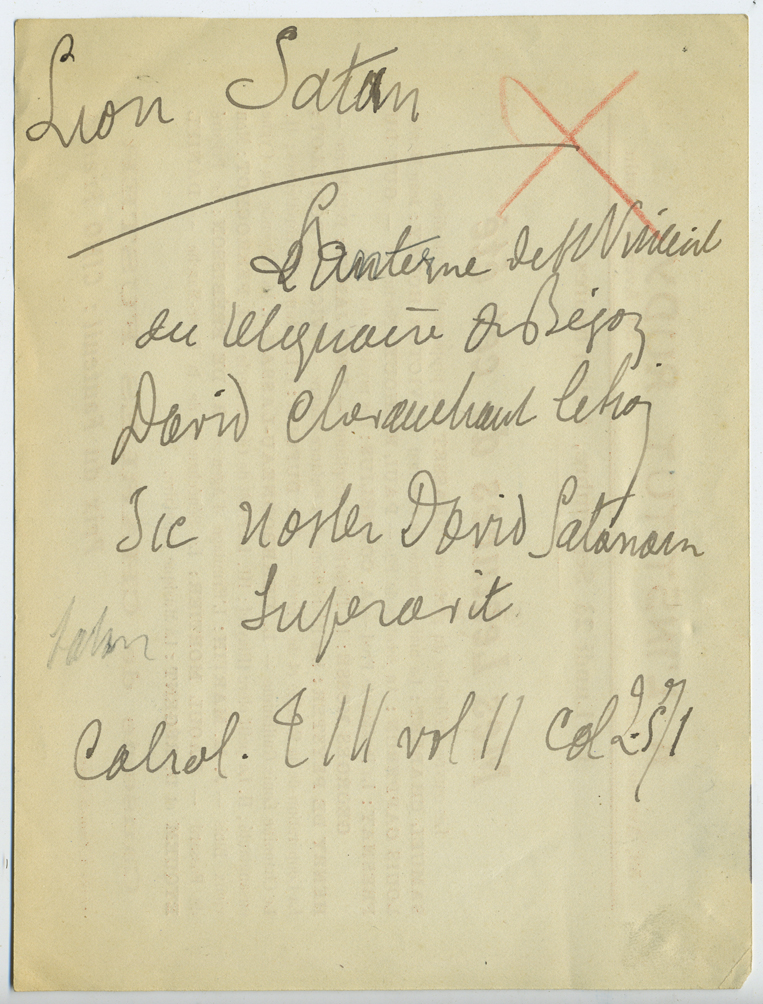 Lion Satan
Lanterne de St Vincent
du reliquaire de Bégon
David chevauchant le lion
Sic noster David Satanam
Superavit
satan
Cabrol. T III vol II col 2571